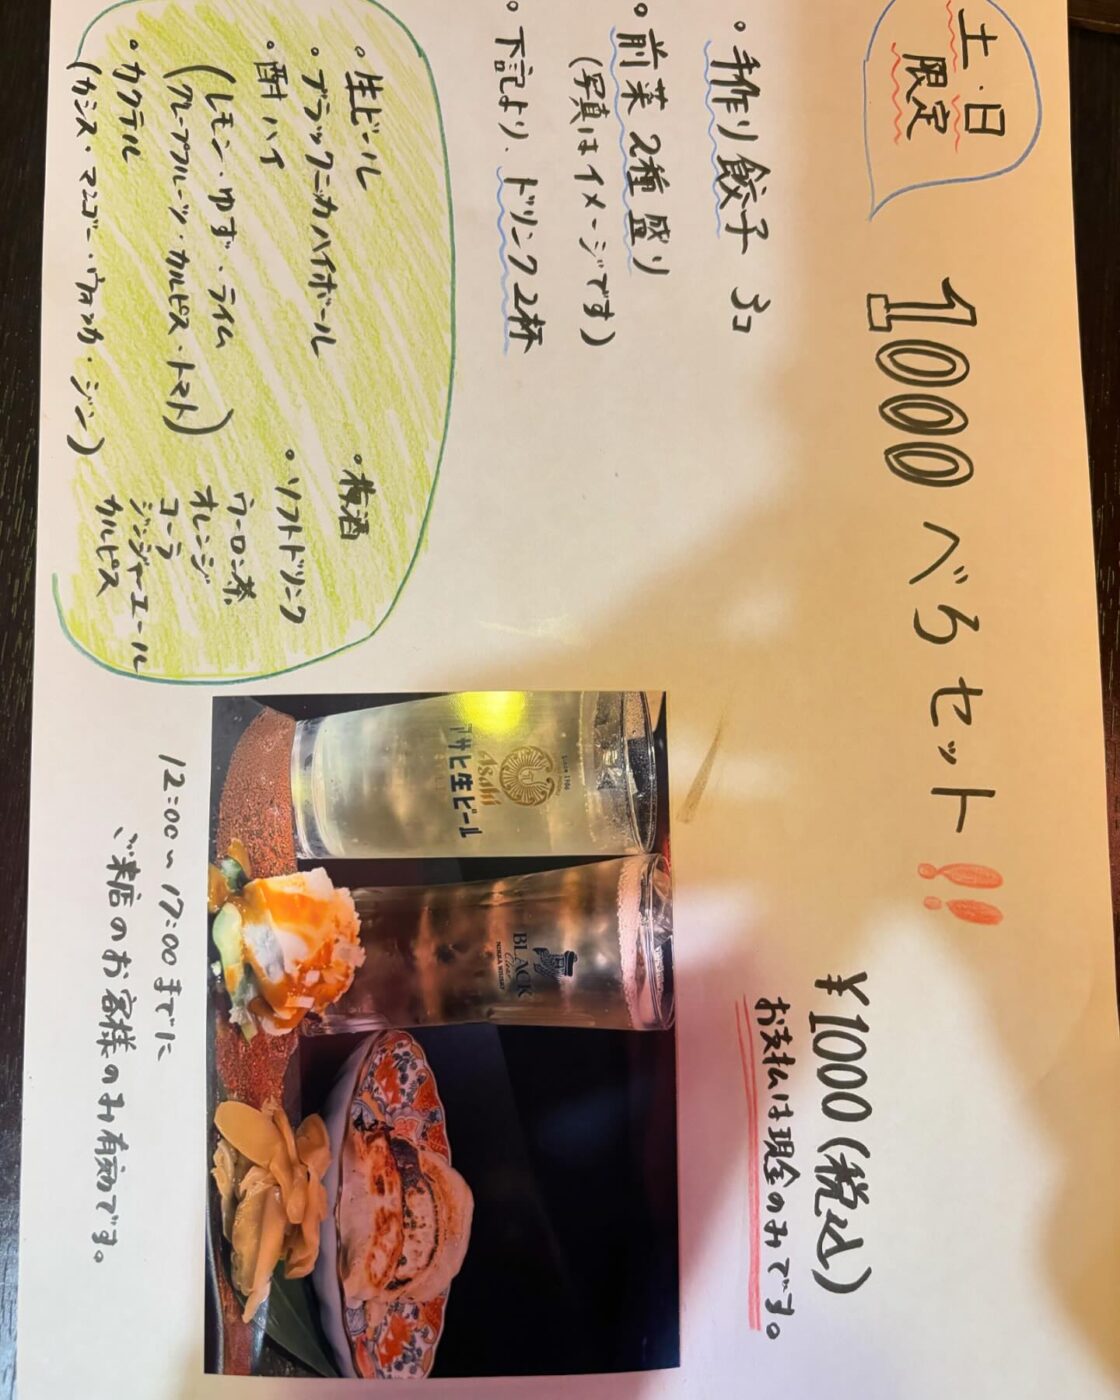 土・日
限定
1000べろセット!!
¥1000(税込)
お支払は現金のみです。
・手作り餃子 3コ
・前菜2種盛り
(写真はイメージです)
・下記より、ドリンク2杯
・生ビール
・ブラックニカハイボール
・酎ハイ
(レモン・ゆず・ライム
グレープフルーツ・カルピス・トマト)
・カクテル
(カシス・マンゴー・ウォッカ・ジン)
・梅酒
・ソフトドリンク
ウーロン茶
オレンジ
コーラ
ジンジャーエール
カルピス
Asahi
アサヒ生ビール
BLACK
Clear
NIKKA WHISKY
12:00〜17:00までに
ご来店のお客様のみ有効です。